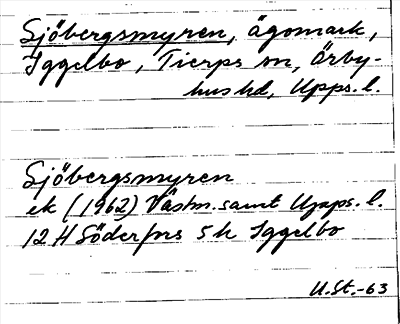 Sjöbergsmyren, ägomark,
Iggelbo, Tierps sn, Örby-
hus hd, Upps. l.
Sjöbergsmyren
ek (1962) Västm. samt Upps. l.
12 H Söderfors 5 h Iggelbo
U.St.-63